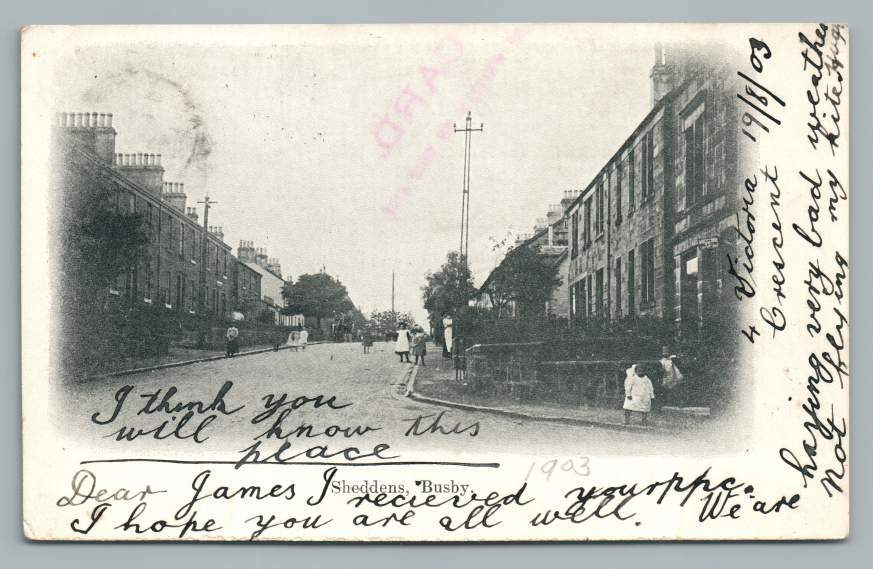 CARD.
4 Victoria
Crescent 19/8/03
I think you
will know this
place
Sheddens, Busby.
1903
Dear James I recieved your ppc.
I hope you are all well. We are
having very bad weather
Not flying my kite